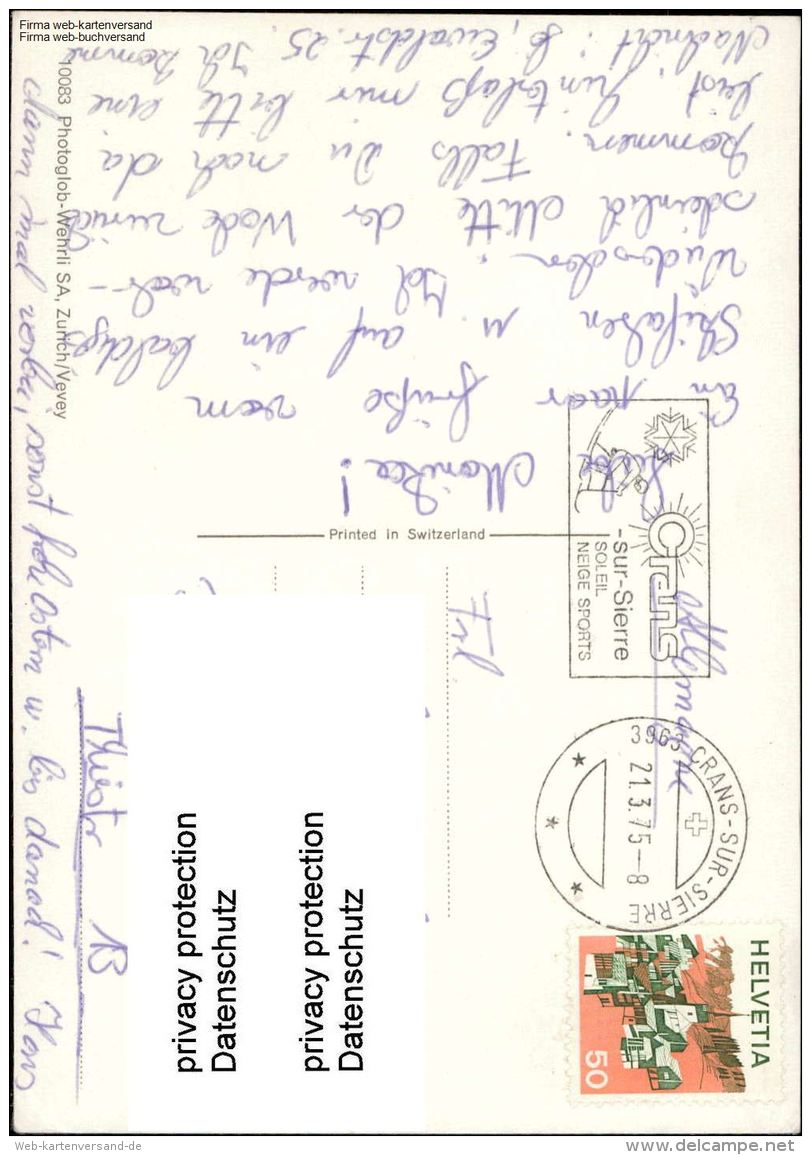 Firma web-kartenversand
Firma web-buchversand
Liebe Monika!
Ein paar Grüße vom
Skifahren u. auf ein baldiges
Wiedersehen. Ich werde wahr-
scheinlich Mitte der Woche zurück
kommen. Falls Du noch da
bist, hinterlaß mir bitte eine
Nachricht: Ewaldstr. 25. Ich komme
dann mal vorbei, sonst frohe Ostern u. bis danach! Hans
10083 Photoglob-Wehrli SA, Zürich/Vevey
Printed in Switzerland
Crans
-sur-Sierre
SOLEIL
NEIGE SPORTS
3963 CRANS-SUR-SIERRE
21.3.75-8
HELVETIA
50
Frl
privacy protection
Datenschutz
privacy protection
Datenschutz
13
Allemagne
Web-kartenversand-de
www.delcampe.net